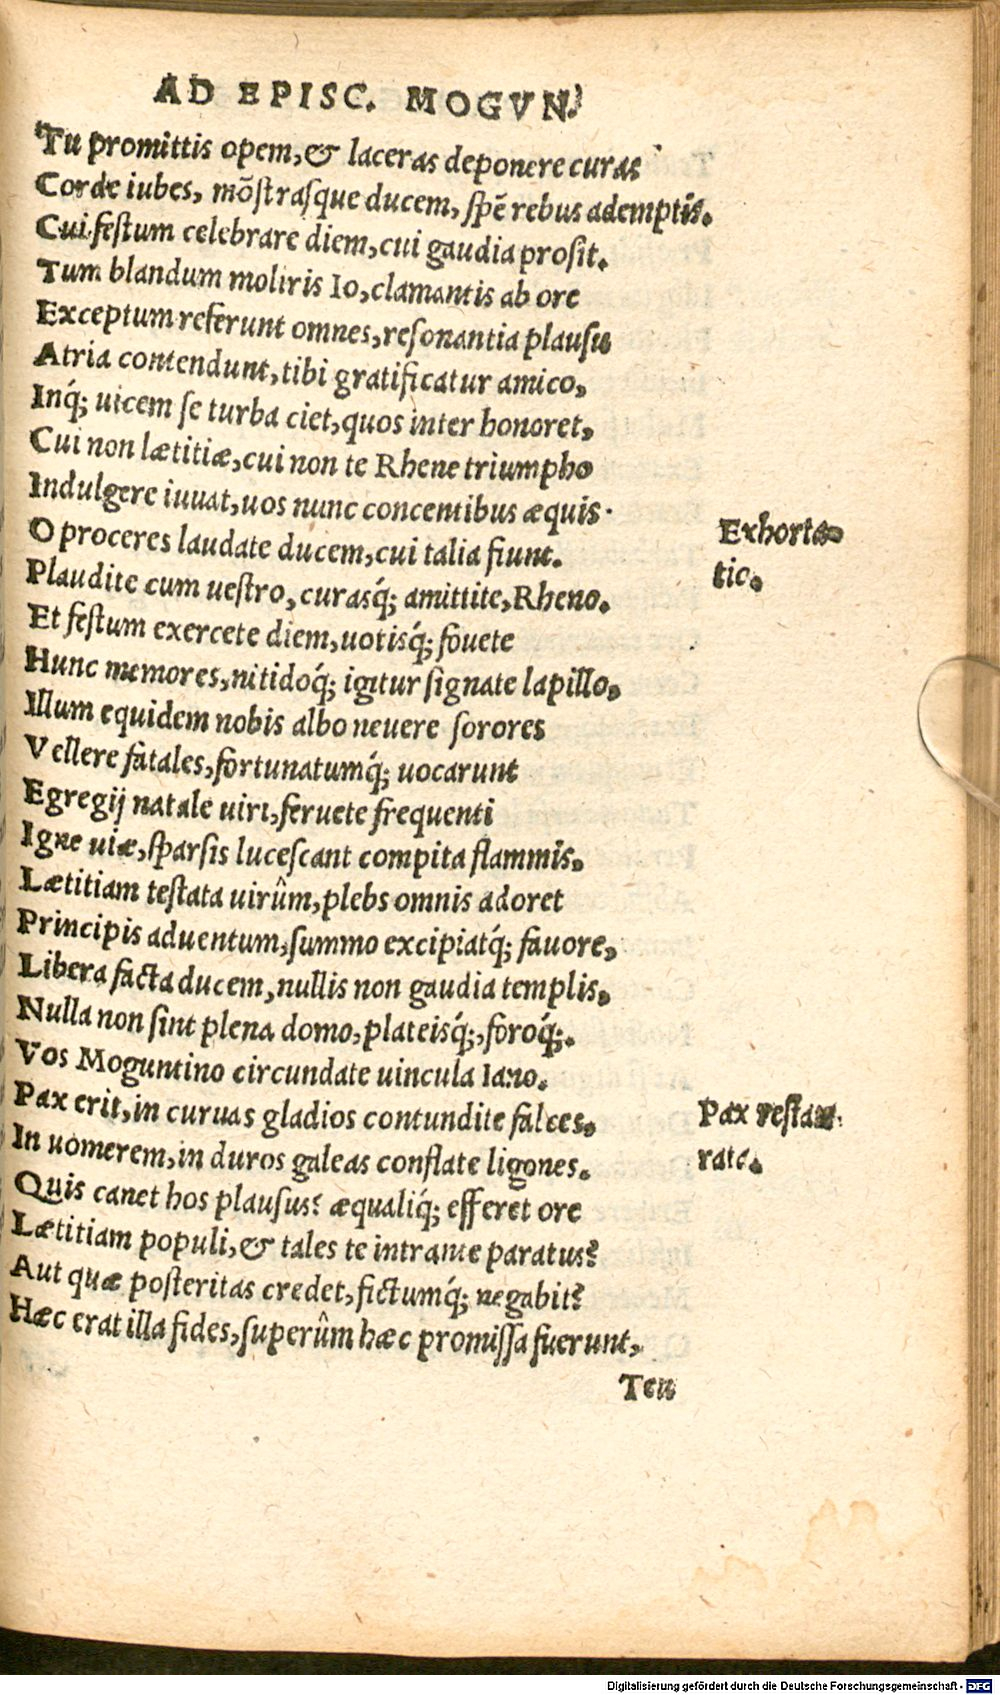 AD EPISC. MOGVN.
Tu promittis opem, & laceras deponere curas
Corde iubes, mõstrasque ducem, spẽ rebus ademptis.
Cui festum celebrare diem, cui gaudia prosit.
Tum blandum moliris Io, clamantis ab ore
Exceptum referunt omnes, resonantia plausu
Atria contendunt, tibi gratificatur amico,
Inq́; uicem se turba ciet, quos inter honoret,
Cui non lætitiæ, cui non te Rhene triumpho
Indulgere iuuat, uos nunc concentibus æquis.
O proceres laudate ducem, cui talia fiunt.
Exhorta-
tio.
Plaudite cum uestro, curasq́; amittite, Rheno.
Et festum exercete diem, uotisq́; fouete
Hunc memores, nitidoq́; igitur signate lapillo,
Illum equidem nobis albo neuere sorores
Vellere fatales, fortunatumq́; uocarunt
Egregij natale uiri, feruete frequenti
Igne uiæ, sparsis lucescant compita flammis.
Lætitiam testata uirûm, plebs omnis adoret
Principis aduentum, summo excipiatq́; fauore,
Libera facta ducem, nullis non gaudia templis.
Nulla non sint plena domo, plateisq́;, foroq́;.
Vos Moguntino circundate uincula Iano.
Pax erit, in curuas gladios contundite falces.
Pax restau-
rata.
In uomerem, in duros galeas conflate ligones.
Quis canet hos plausus? æqualiq́; efferet ore
Lætitiam populi, & tales te intrante paratus?
Aut quæ posteritas credet, fictumq́; negabit?
Hæc erat illa fides, superûm hæc promissa fuerunt,
Teu
Digitalisierung gefördert durch die Deutsche Forschungsgemeinschaft - DFG